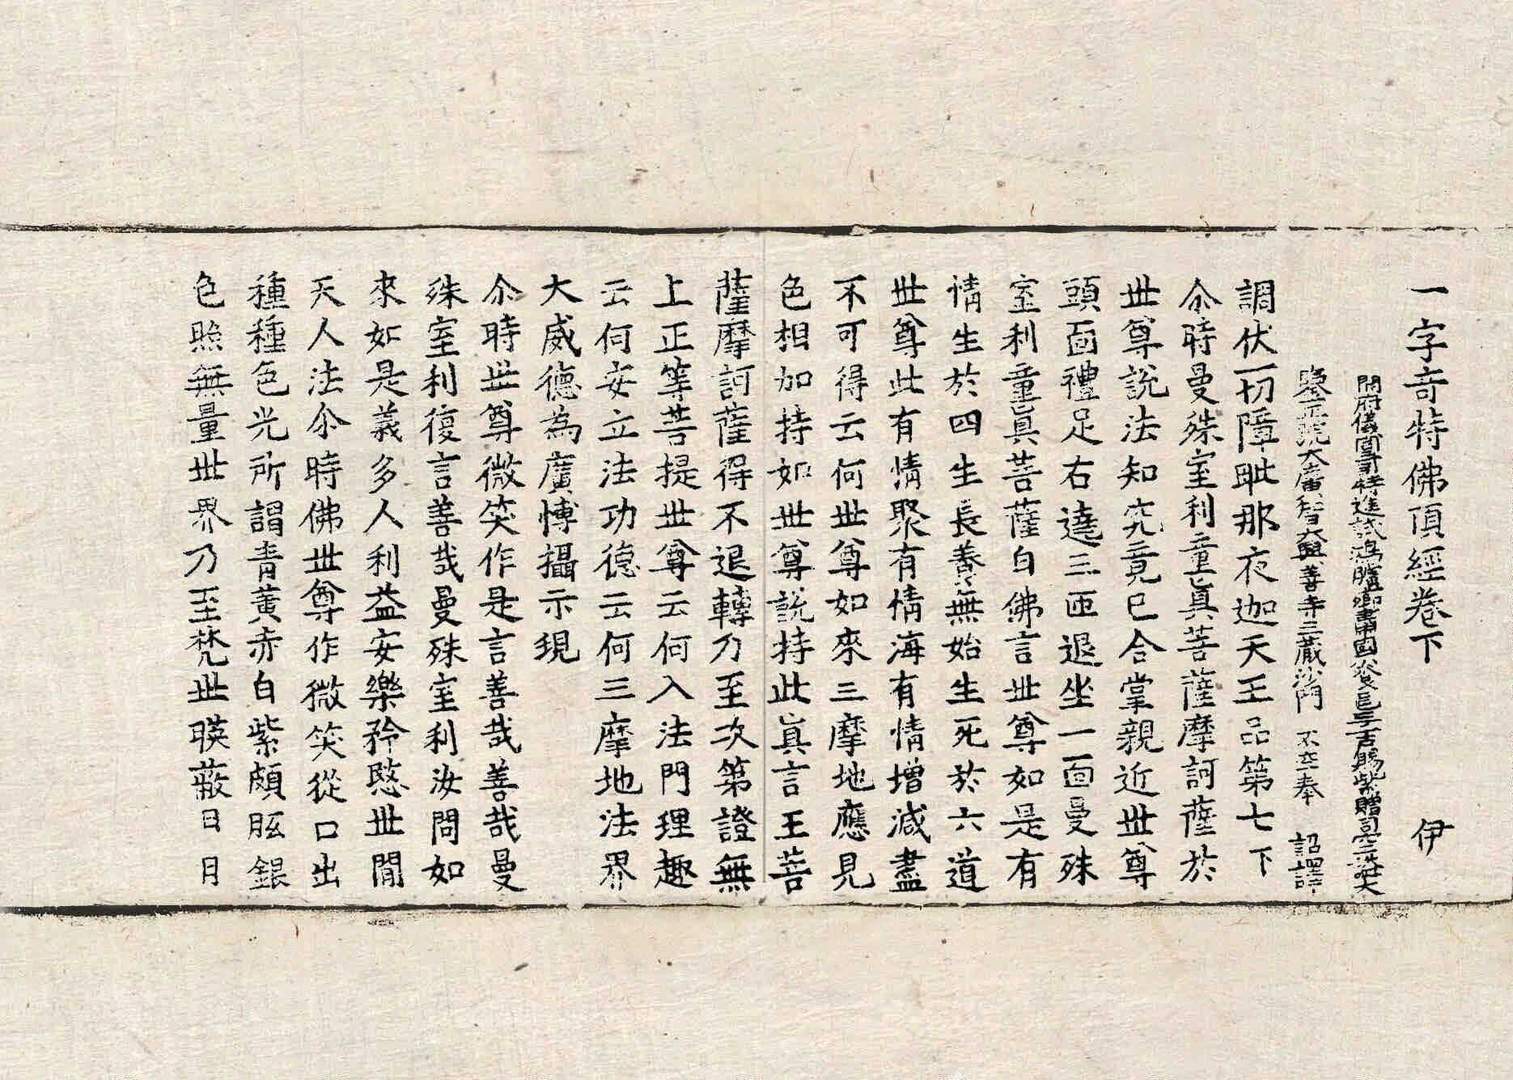 一字奇特佛頂經卷下 伊
開府儀同三司特進試鴻臚卿肅國公食邑三千戶賜紫贈司空謚大
鑒正號大廣智大興善寺三藏沙門 不空奉 詔譯
調伏一切障毗那夜迦天王品第七下
尒時曼殊室利童真菩薩摩訶薩於
世尊說法知究竟已合掌親近世尊
頭面禮足右遶三匝退坐一面曼殊
室利童真菩薩白佛言世尊如是有
情生於四生長養無始生死於六道
世尊此有情聚有情海有情增減盡
不可得云何世尊如來三摩地應見
色相加持如世尊說持此真言王菩
薩摩訶薩得不退轉乃至次第證無
上正等菩提世尊云何入法門理趣
云何安立法功德云何三摩地法界
大威德為廣愽攝示現
尒時世尊微笑作是言善哉善哉曼
殊室利復言善哉曼殊室利汝問如
來如是義多人利益安樂矜愍世閒
天人法尒時佛世尊作微笑從口出
種種色光所謂青黃赤白紫頗胝銀
色照無量世界乃至梵世暎蔽日月